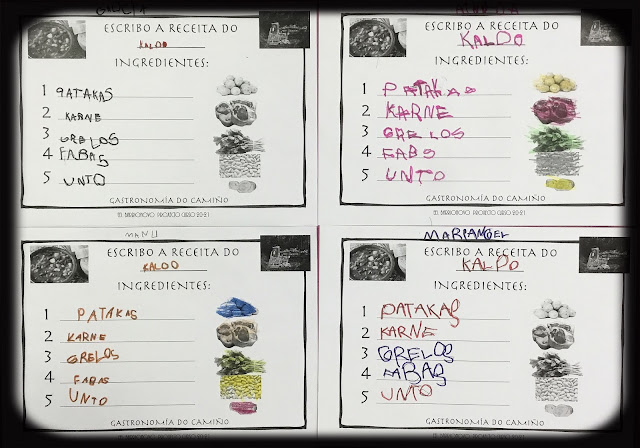 ESCRIBO A RECEITA DO
KALDO
INGREDIENTES:
1 PATAKAS
2 KARNE
3 GRELOS
4 FABAS
5 UNTO
GASTRONOMÍA DO CAMIÑO
BARRIONOVO PROXECTO CURSO 20-21
ESCRIBO A RECEITA DO
KALDO
INGREDIENTES:
1 PATAKAS
2 KARNE
3 GRELOS
4 FABS
5 UNTO
GASTRONOMÍA DO CAMIÑO
BARRIONOVO PROXECTO CURSO 20-21
MANU
ESCRIBO A RECEITA DO
KALDO
INGREDIENTES:
1 PATAKAS
2 KARNE
3 GRELOS
4 FABAS
5 UNTO
GASTRONOMÍA DO CAMIÑO
MARIANOEL
ESCRIBO A RECEITA DO
KALDO
INGREDIENTES:
1 PATAKAS
2 KARNE
3 GRELOS
4 FABAS
5 UNTO
GASTRONOMÍA DO CAMIÑO